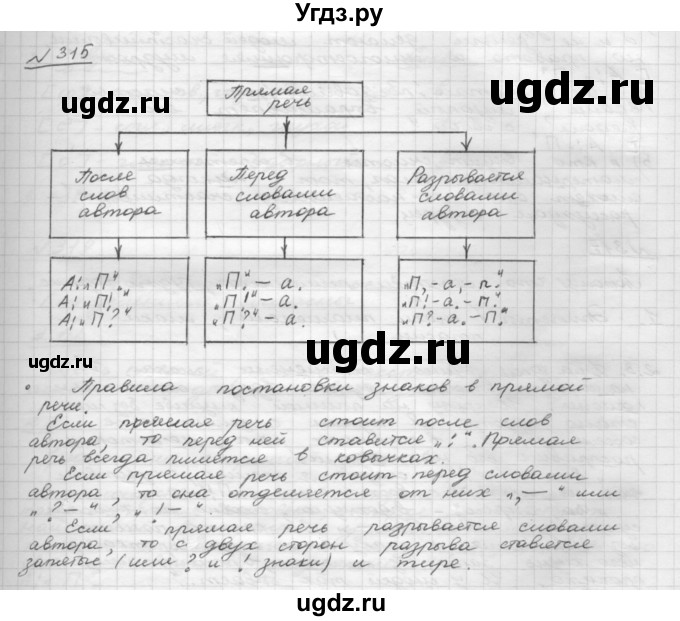 Угдз.ру
№ 315
ugdz.ru
ugdz.ru
Прямая
речь
После
слов
автора
Перед
словами
автора
Разрывается
словами
автора
А: „П“.
А: „П!“
А: „П?“
„П“, – а.
„П!“ – а.
„П?“ – а.
„П, – а, – п.“
„П! – а. – п.“
„П? – а. – П.“
ugdz.ru
ugdz.ru
• Правила постановки знаков в прямой
речи.
Если прямая речь стоит после слов
автора, то перед ней ставится „:“. Прямая
речь всегда пишется в ковычках.
Если прямая речь стоит перед словами
автора, то она отделяется от них „, –“ или
„? –“, „! –“.
Если прямая речь разрывается словами
автора, то с двух сторон разрыва ставятся
запятые (или ? и ! знаки) и тире.
ugdz.ru